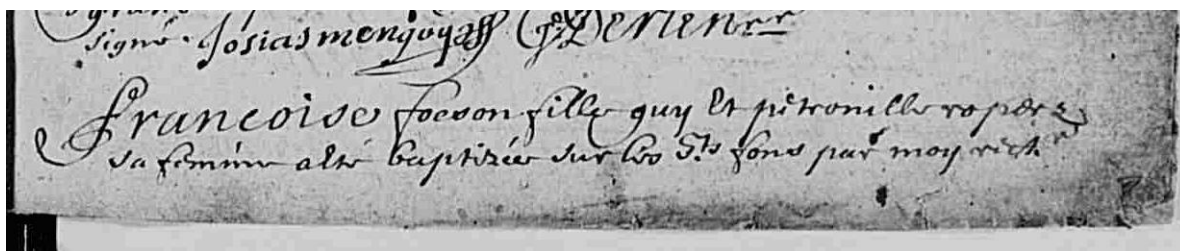 signé Josias menguy
Francoise foeson fille guy Et petronille roperz
sa femme a esté baptizée sur les Sts fons par moy rectr